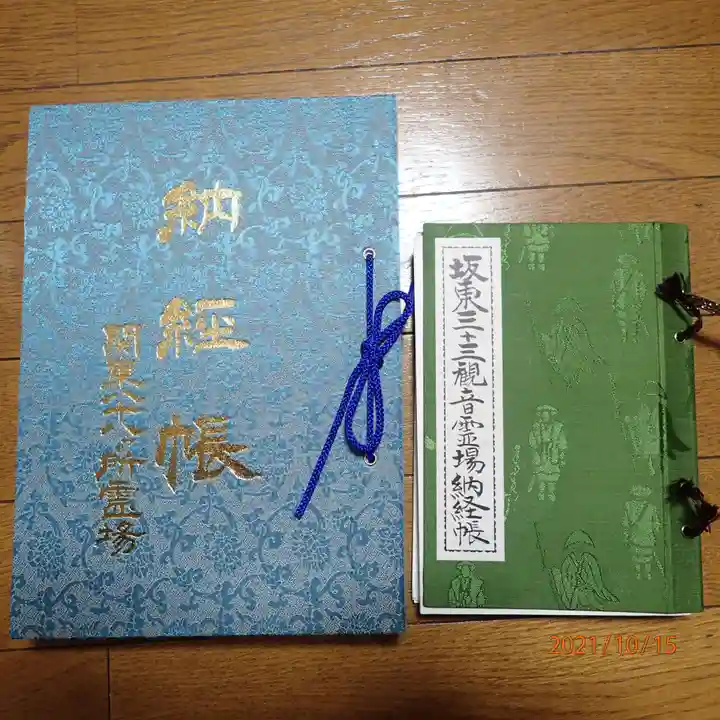 納経帳
関東八十八ヶ所霊場
坂東三十三観音霊場納経帳
2021/10/15